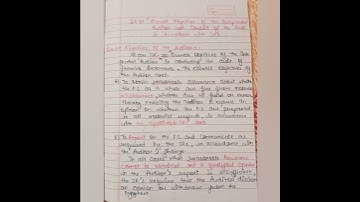 SA 200 "Overall Objectives of the Independent
Auditor and Conduct of the Audit
in accordance with SA's
Overall Objectives of the Auditor:
As per SA-200 "Overall Objectives of the Inde-
pendent Auditor", in conducting an audit of
financial statements, the overall objectives of
the Auditor are:
a) To obtain reasonable assurance about whether
the F.S. as a whole are free from material
misstatement, whether due to fraud or error,
thereby enabling the auditor to express an
opinion on whether the F.S. are prepared,
in all material respects, in accordance
with an applicable
b) To Report on the F.S. and communicate as
required by the SA's, in accordance with
the Auditor's findings.
In all cases when reasonable assurance
cannot be obtained and a qualified opinion
in the Auditor's report is insufficient,
the SA's require that the Auditor disclaim
an opinion or withdraw from the